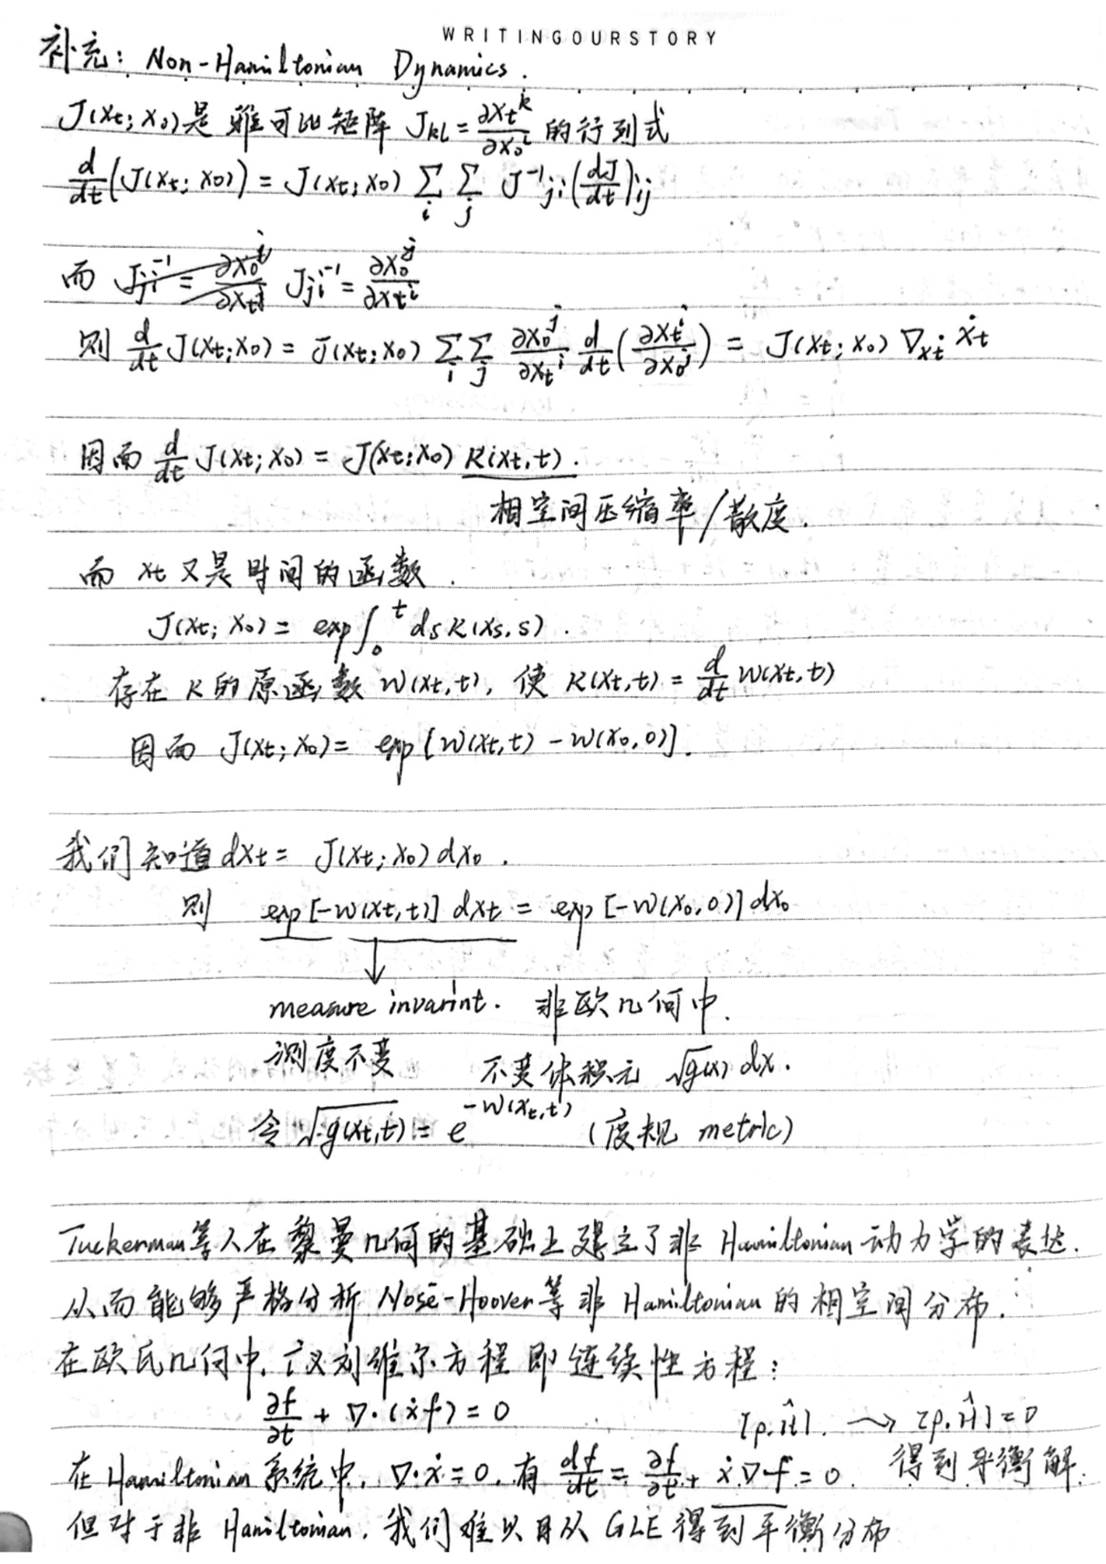 WRITINGOURSTORY
补充: Non-Hamiltonian Dynamics.
J(xt; x0)是 雅可比矩阵 J_kl = ∂xt^k/∂x0^l 的行列式
d/dt(J(xt; x0)) = J(xt; x0) Σ_i Σ_j J^-1_ji (dJ/dt)_ij
而 J_ji^-1 = ∂x0^j/∂xt^i
则 d/dt J(xt;x0) = J(xt;x0) Σ_i Σ_j ∂x0^j/∂xt^i d/dt(∂xt^i/∂x0^j) = J(xt; x0) ∇_xt · ẋt
因而 d/dt J(xt; x0) = J(xt;x0) κ(xt,t).
相空间压缩率/散度.
而 xt 又是时间的函数.
J(xt; x0) = exp∫_0^t ds κ(xs,s).
存在 κ的原函数 w(xt,t), 使 κ(xt,t) = d/dt w(xt,t)
因而 J(xt; x0) = exp[w(xt,t) - w(x0,0)].
我们知道 dxt = J(xt; x0) dx0.
则 exp[-w(xt,t)] dxt = exp[-w(x0,0)] dx0
↓
measure invarint. 非欧几何中.
测度不变 不变体积元 √g(x) dx.
令 √g(xt,t) = e^-w(xt,t) (度规 metric)
Tuckerman等人在黎曼几何的基础上建立了非 Hamiltonian 动力学的表达.
从而能够严格分析 Nosé-Hoover等非 Hamiltonian 的相空间分布.
在欧氏几何中, 广义刘维尔方程即连续性方程:
∂f/∂t + ∇·(ẋf) = 0
[ρ,Ĥ]. → [ρ,Ĥ]=0
在 Hamiltonian 系统中, ∇·ẋ = 0, 有 df/dt = ∂f/∂t + ẋ·∇f = 0. 得到平衡解.
但对于非 Hamiltonian, 我们难以从 GLE 得到平衡分布